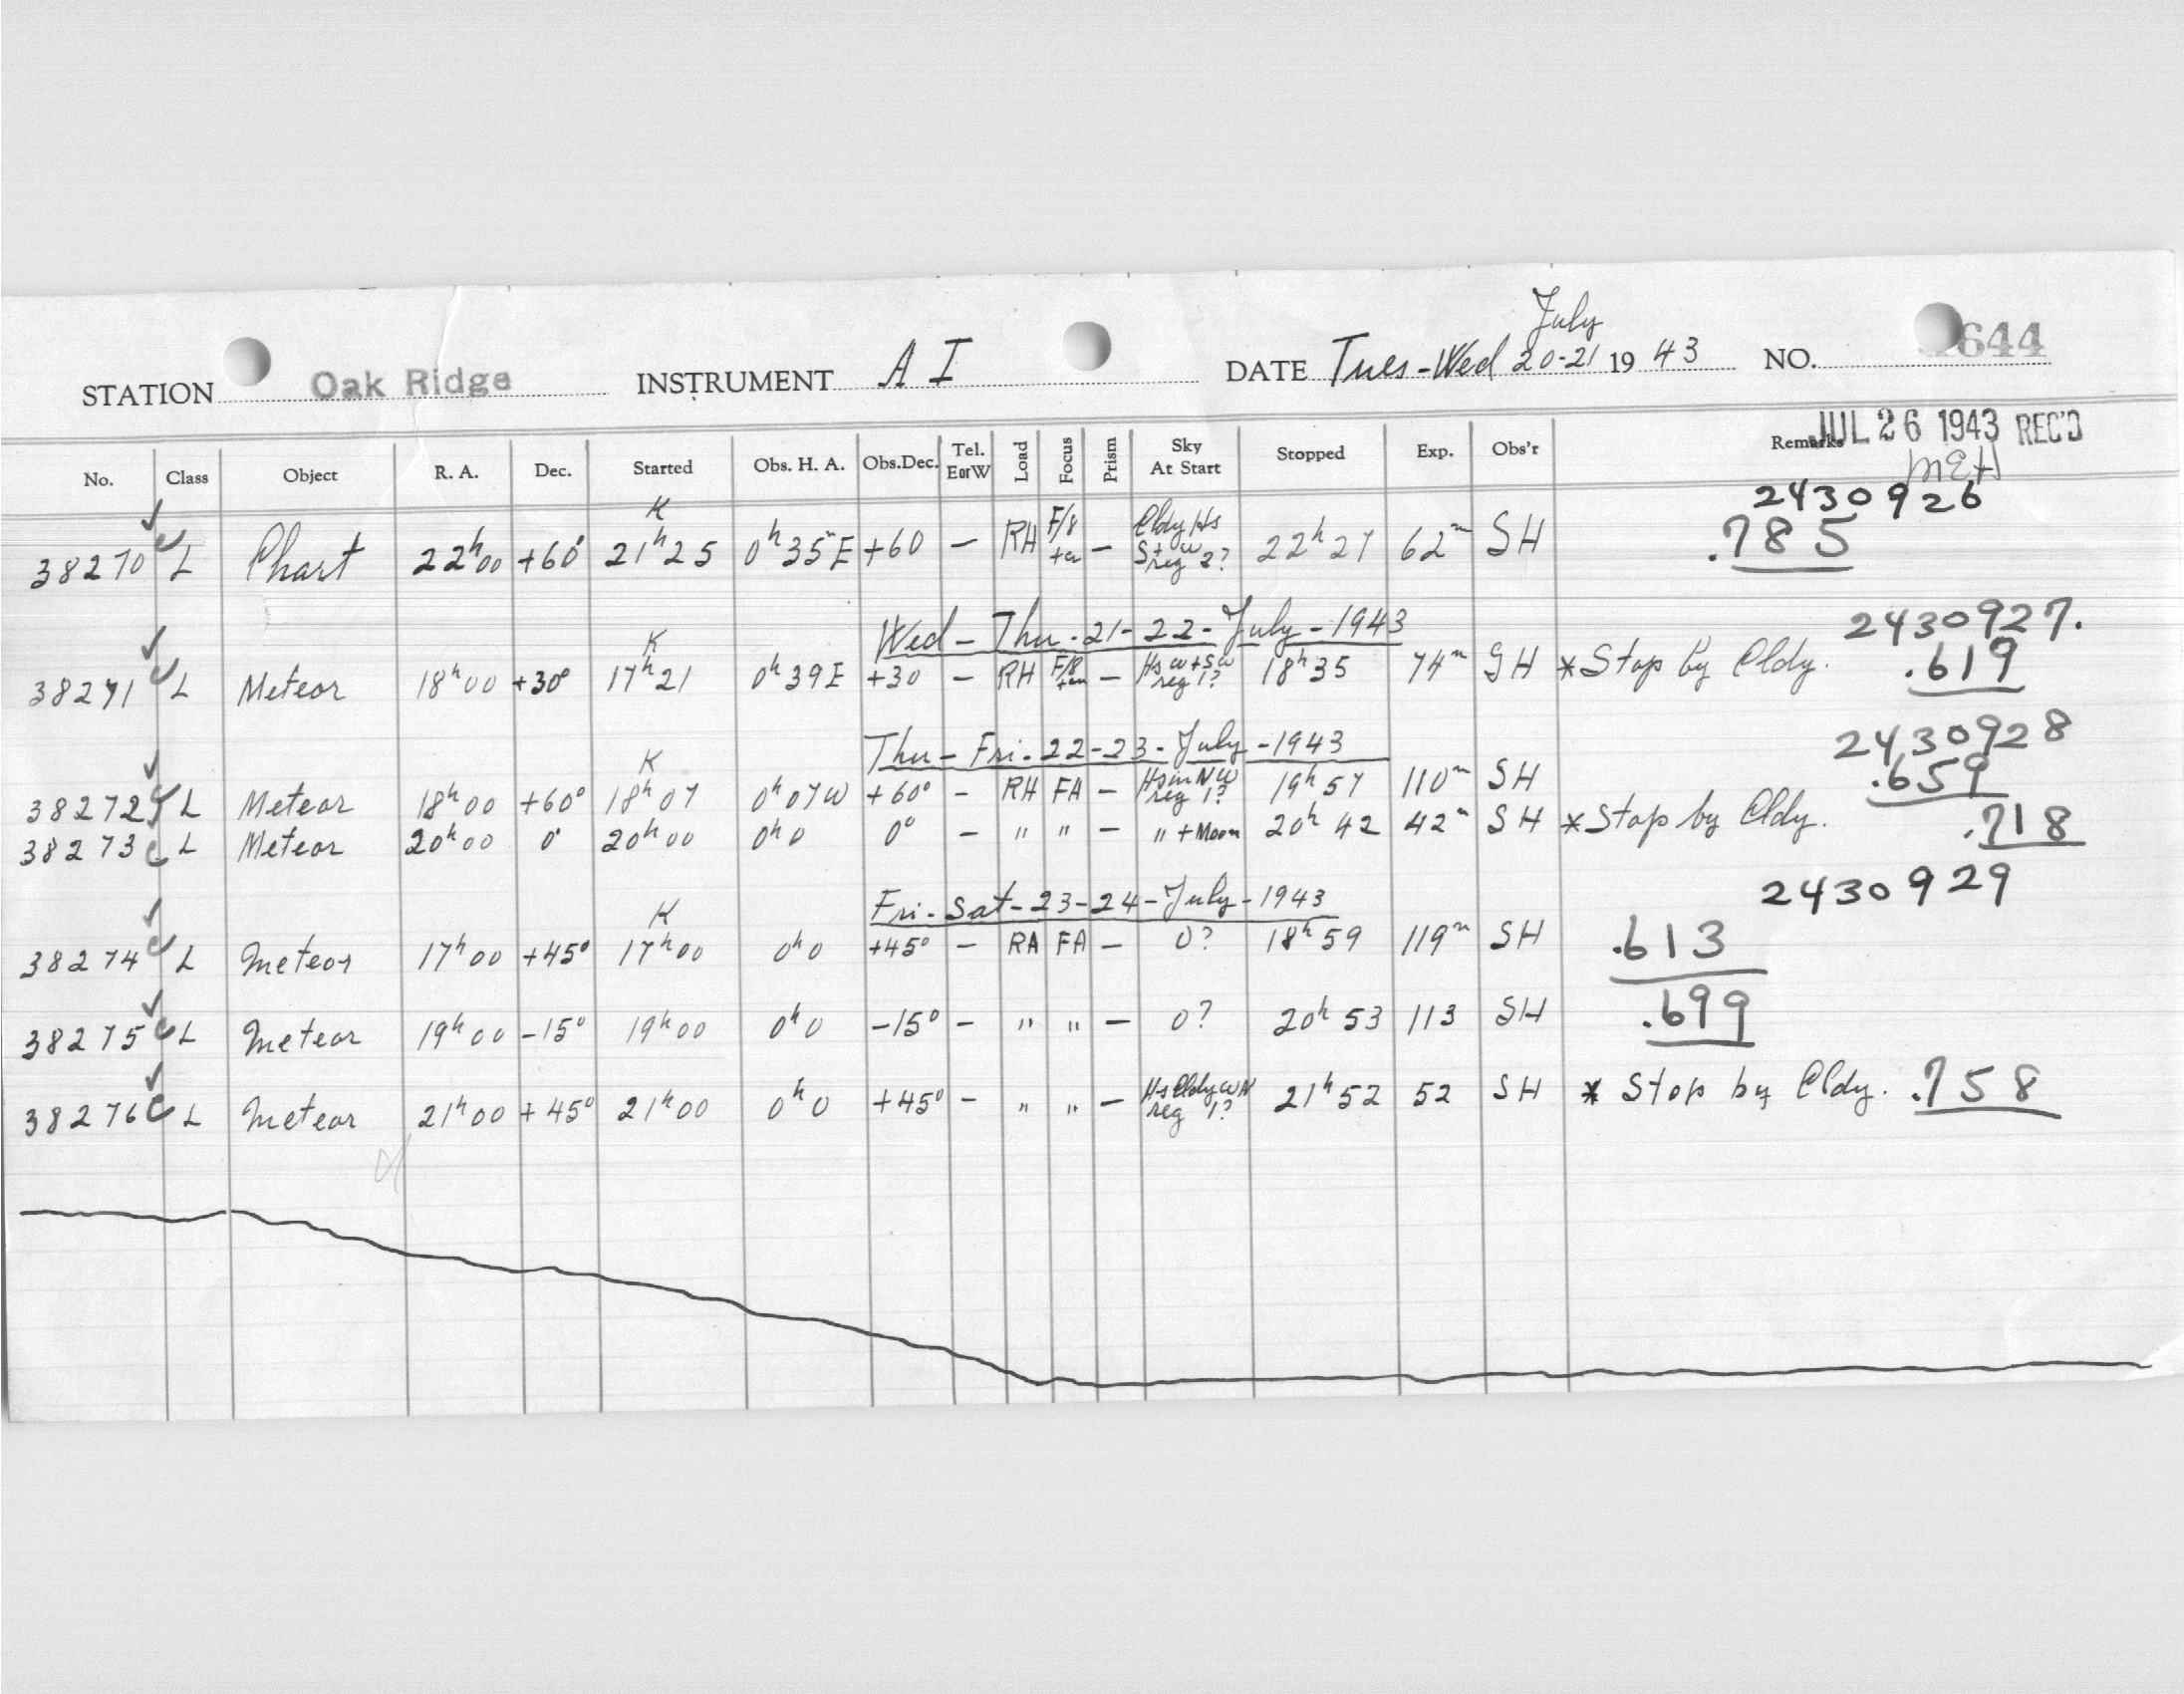 July
STATION Oak Ridge INSTRUMENT A I DATE Tues-Wed 20-21 1943 NO. 644
JUL 26 1943 REC'D
No. Class Object R. A. Dec. Started Obs. H. A. Obs.Dec. Tel. EorW Load Focus Prism Sky At Start Stopped Exp. Obs'r Remarks
MEH
K 2430926
38270 L Chart 22h00 +60° 21h25 0h35mE +60 — RH F/8 — Cldy Hs S+W reg 2? 22h27 62m SH .785
Wed - Thu - 21-22 - July - 1943 2430927.
K
38271 L Meteor 18h00 +30° 17h21 0h39E +30 — RH F/8 — Hs W+SW reg 1? 18h35 74m SH *Stop by Cldy. .619
Thu - Fri - 22-23 - July - 1943 2430928
K
38272 L Meteor 18h00 +60° 18h07 0h07W +60° - RH FA — Hs in NW reg 1? 19h57 110m SH .659
38273 L Meteor 20h00 0° 20h00 0h0 0° — " " — " + Moon 20h42 42m SH *Stop by Cldy. .718
Fri - Sat - 23-24 - July - 1943 2430929
K
38274 L Meteor 17h00 +45° 17h00 0h0 +45° — RA FA — 0? 18h59 119m SH .613
38275 L Meteor 19h00 -15° 19h00 0h0 -15° — " " — 0? 20h53 113 SH .699
38276 L Meteor 21h00 +45° 21h00 0h0 +45° — " " — Hs Cldy W N reg 1? 21h52 52 SH * Stop by Cldy. .758